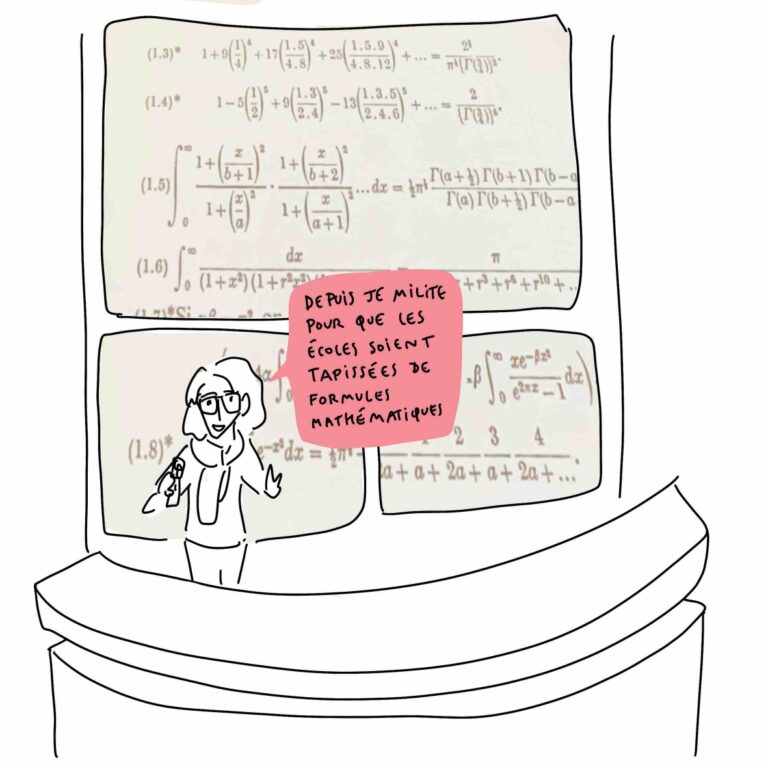 (1.3)* 1+9(1/4)^4+17(1.5/4.8)^4+25(1.5.9/4.8.12)^4+...=
(1.4)* 1−5(1/2)^5+9(1.3/2.4)^5−13(1.3.5/2.4.6)^5+...=2/{Γ(¾)}^4.
(1.5) ∫_0^∞ (1+(x/(b+1))^2)/(1+(x/a)^2) · (1+(x/(b+2))^2)/(1+(x/(a+1))^2) ...dx = ½π^½ Γ(a+½)Γ(b+1)Γ(b−a / Γ(a)Γ(b+½)Γ(b−a
(1.6) ∫_0^∞ dx/(1+x²)(1+r²x²) = π / +r³+r⁶+r¹⁰+..
DEPUIS JE MILITE
POUR QUE LES
ÉCOLES SOIENT
TAPISSÉES DE
FORMULES
MATHÉMATIQUES
β∫_0^∞ xe^{−βx²}/(e^{2πx}−1) dx)
(1,8)* e^{−x²}dx = ½π^½
2 3 4
a+ a+ 2a+ a+ 2a+...